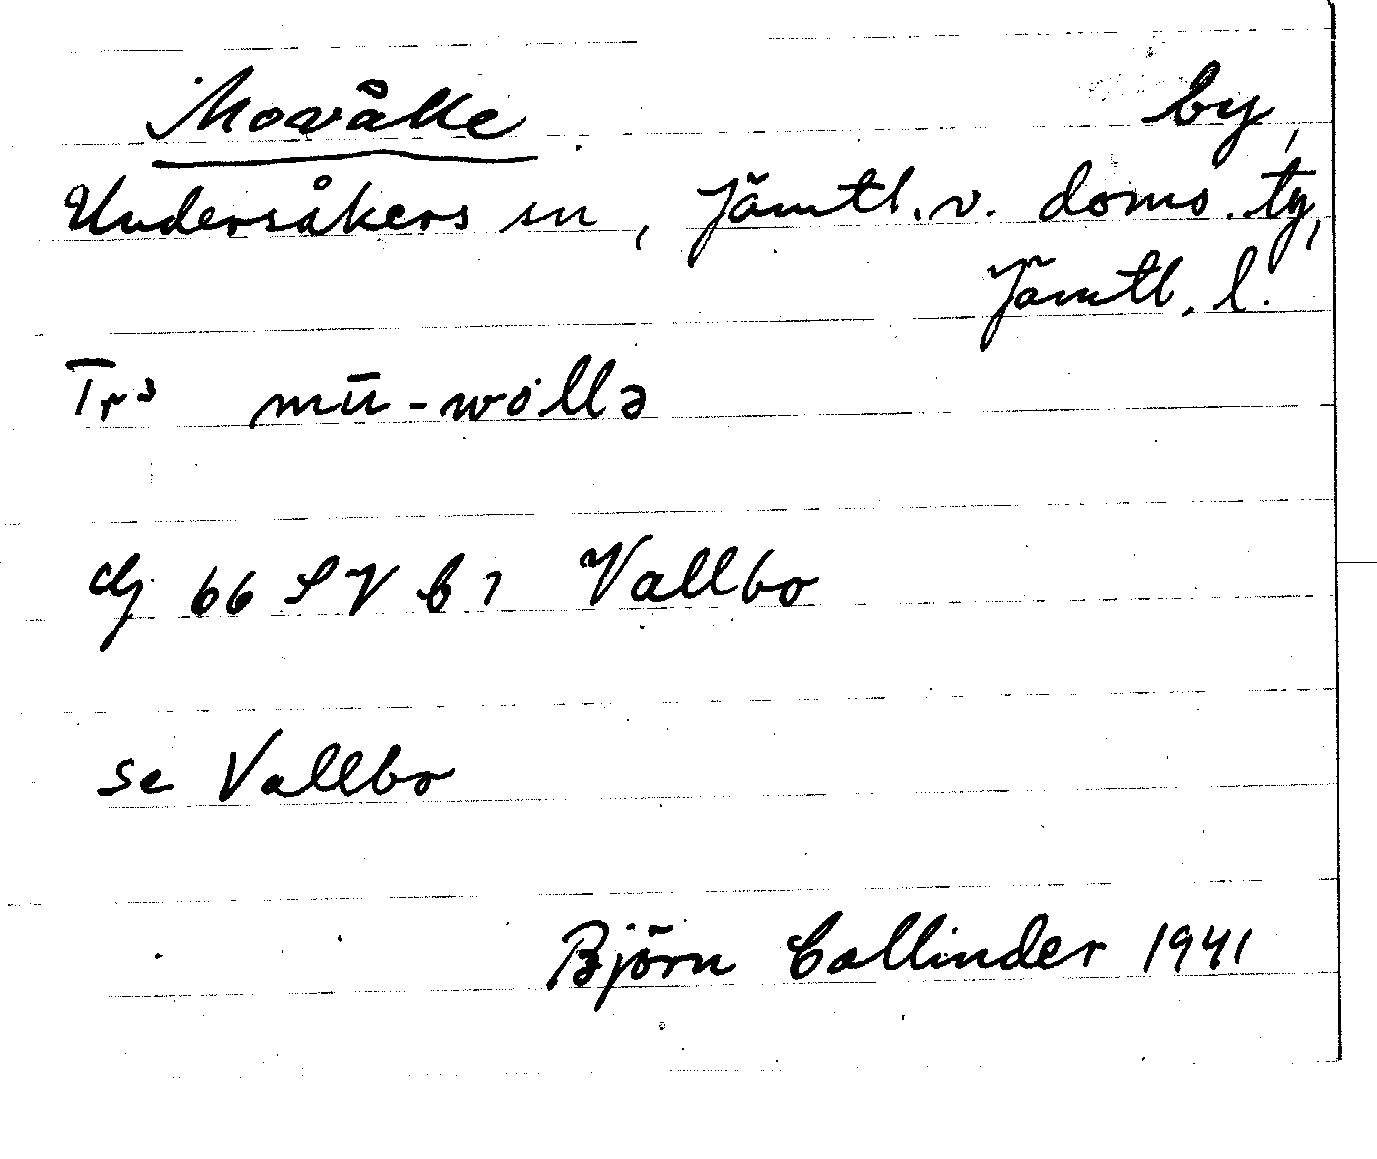 Movålle by,
Undersåkers sn, Jämtl. v. doms. ty,
Jämtl. l.
Trs mū-wollə
dg 66 SV b 1 Vallbo
se Vallbo
Björn Collinder 1941